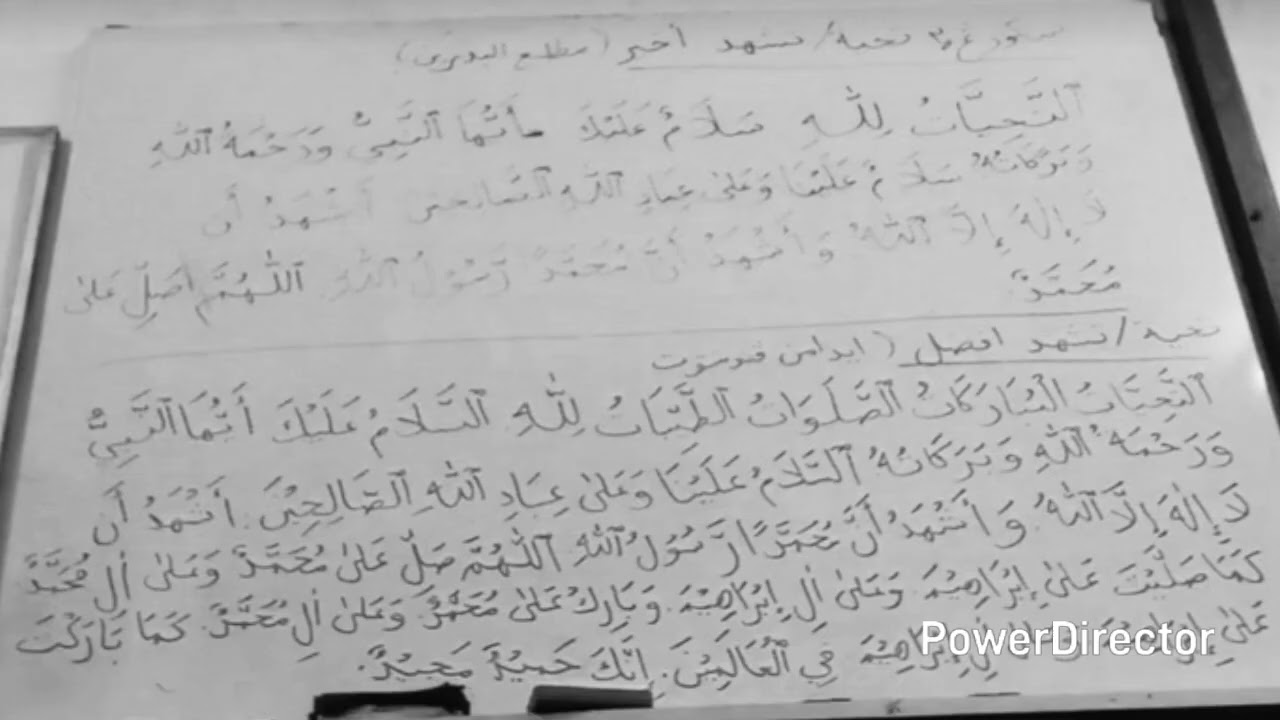 تحية/تشهد أخير (مطلع البدرين)
التَّحِيَّاتُ لِلّٰهِ سَلَامٌ عَلَيْكَ أَيُّهَا النَّبِيُّ وَرَحْمَةُ اللهِ
وَبَرَكَاتُهُ سَلَامٌ عَلَيْنَا وَعَلَىٰ عِبَادِ اللهِ الصَّالِحِينَ أَشْهَدُ أَن
لَا إِلٰهَ إِلَّا اللهُ وَأَشْهَدُ أَنَّ مُحَمَّدً رَسُولُ اللهِ اللّٰهُمَّ صَلِّ عَلَىٰ
مُحَمَّدٌ
تحية/تشهد افضل (
التَّحِيَّاتُ الْمُبَارَكَاتُ الصَّلَوَاتُ الطَّيِّبَاتُ لِلّٰهِ السَّلَامُ عَلَيْكَ أَيُّهَا النَّبِيُّ
وَرَحْمَةُ اللهِ وَبَرَكَاتُهُ السَّلَامُ عَلَيْنَا وَعَلَىٰ عِبَادِ اللهِ الصَّالِحِيْنَ. أَشْهَدُ أَن
لَا إِلٰهَ إِلَّا اللهُ وَأَشْهَدُ أَنَّ مُحَمَّدًا رَّسُوْلُ اللهِ اللّٰهُمَّ صَلِّ عَلَىٰ مُحَمَّدً وَعَلَىٰ اٰلِ مُحَمَّدً
كَمَا صَلَّيْتَ عَلَىٰ إِبْرَاهِيْمَ وَعَلَىٰ اٰلِ إِبْرَاهِيْمَ وَبَارِكْ عَلَىٰ مُحَمَّدٌ وَعَلَىٰ اٰلِ مُحَمَّدٌ كَمَا بَارَكْتَ
عَلَىٰ إِبْرَاهِيْمَ اٰلِ إِبْرَاهِيْمَ فِي الْعَالَمِيْنَ. إِنَّكَ حَمِيْدٌ مَجِيْدٌ.
PowerDirector